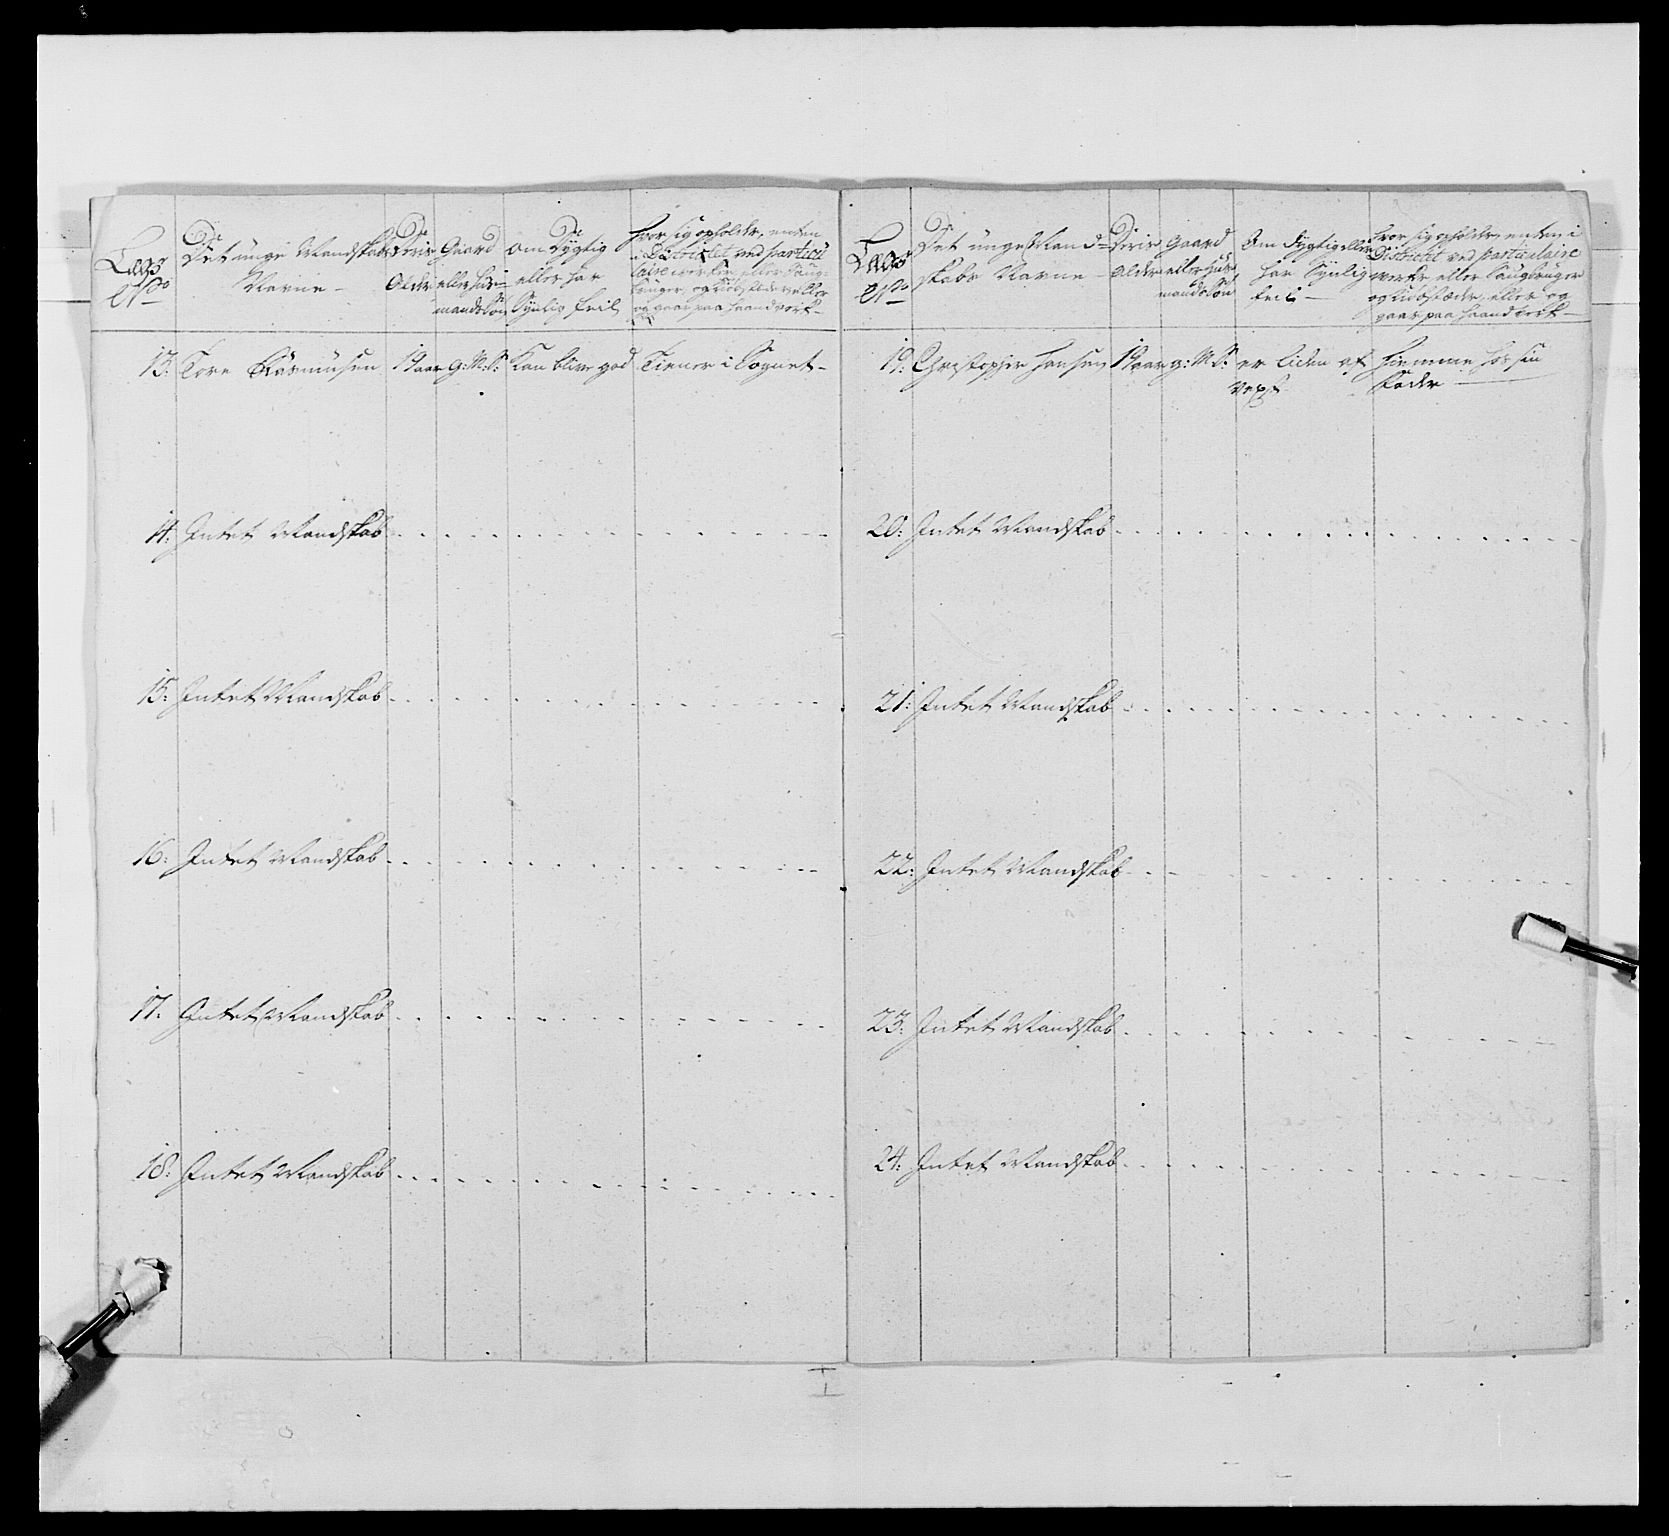 Lægs No
Det unge Mandskabs Navne
Deris Alder
Gaard eller Huusmandssøn
Om Dygtig eller har Synlig Feil
Hvor sig opholder, enten i Districtet ved particulaire verker eller Saugbruger, og Kiøbstæder eller og gaar paa Haandverk
13: Tore Rasmusen 19 aar G: M: S: Kan blive god Tiener i Sognet
14: Intet Mandskab
15: Intet Mandskab
16: Intet Mandskab
17: Intet Mandskab
18: Intet Mandskab
Lægs No
Det unge Mandskabs Navne
Deris Alder
Gaard eller Huusmandssøn
Om Dygtig eller har Synlig Feil
Hvor sig opholder, enten i Districtet ved particulaire verker eller Saugbruger og Kiøbstæder, eller og gaar paa Haandverk
19: Christopher Hansen 19 aar g: M S: er liden af Hiemme hos sin
Vext Fader
20: Intet Mandskab
21: Intet Mandskab
22: Intet Mandskab
23: Intet Mandskab
24: Intet Mandskab